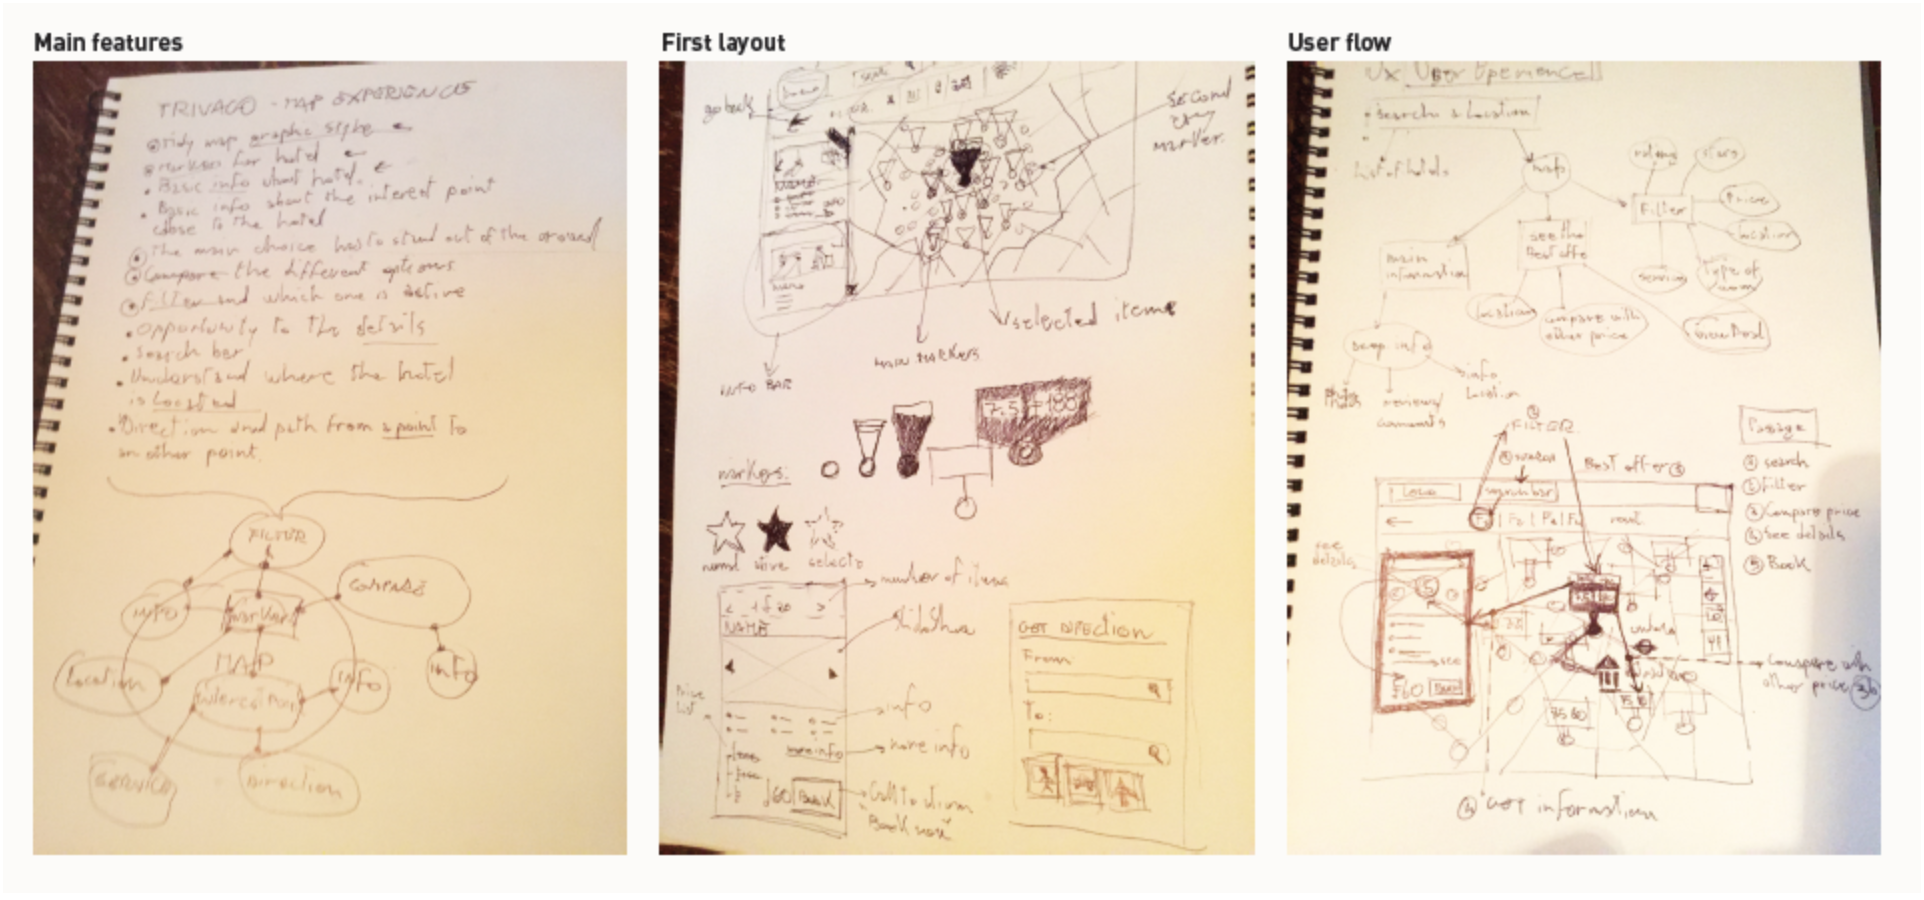 Main features
First layout
User flow
TRIVAGO - MAP EXPERIENCE
Tidy map graphic style
markers for hotel
Basic info about hotel.
Basic info about the interest point
close to the hotel
The main choice has to stand out of the around
Compare the different options
Filter and which one is active
opportunity to the details
search bar
Understand where the hotel
is located
Direction and path from a point to
another point.
FILTER
INFO
COMPARE
MAP
Location
INFO
INFO
interest point
SERVICE
Direction
go back
second
marker.
selected items
MAIN MARKERS
INFO BAR
markers:
normal active
number of items
< 1 of 20 >
NAME
slideshow
Price
List
info
more info
more info
60 Book
Call to action
Book now
GET DIRECTION
From:
To:
UX User Experience
Search a Location
List of hotels
map
rating
stars
Filter
Price
location
service
Type of
room
main
information
see the
Best offe
location
compare with
other price
Deep info
info
location
reviews/
comments
② FILTER
Best offer ③
Passage
① search
② Filter
③ Compare price
④ See details
⑤ Book
Logo
search bar
see
details
⑤
see
60
compare with
other price 3b
④ GET information